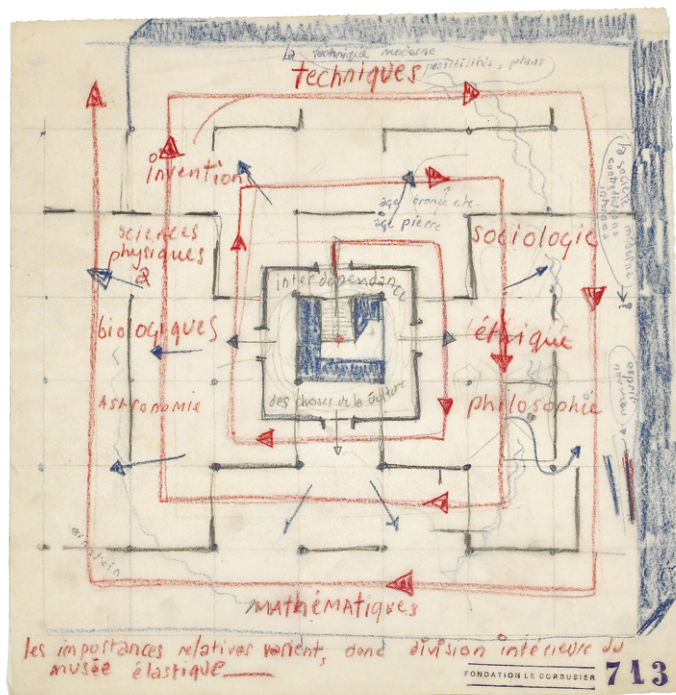 la technique moderne
possibilités, plans
techniques
Invention
âge bronze etc.
âge pierre
sciences
physiques
2
sociologie
la société moderne
inter dépendance
biologiques
éthique
des choses de la culture
ASTRONOMIE
philosophie
esprit
einstein
MATHÉMATIQUES
les importances relatives varient, donc division intérieure du
musée élastique
FONDATION LE CORBUSIER 713